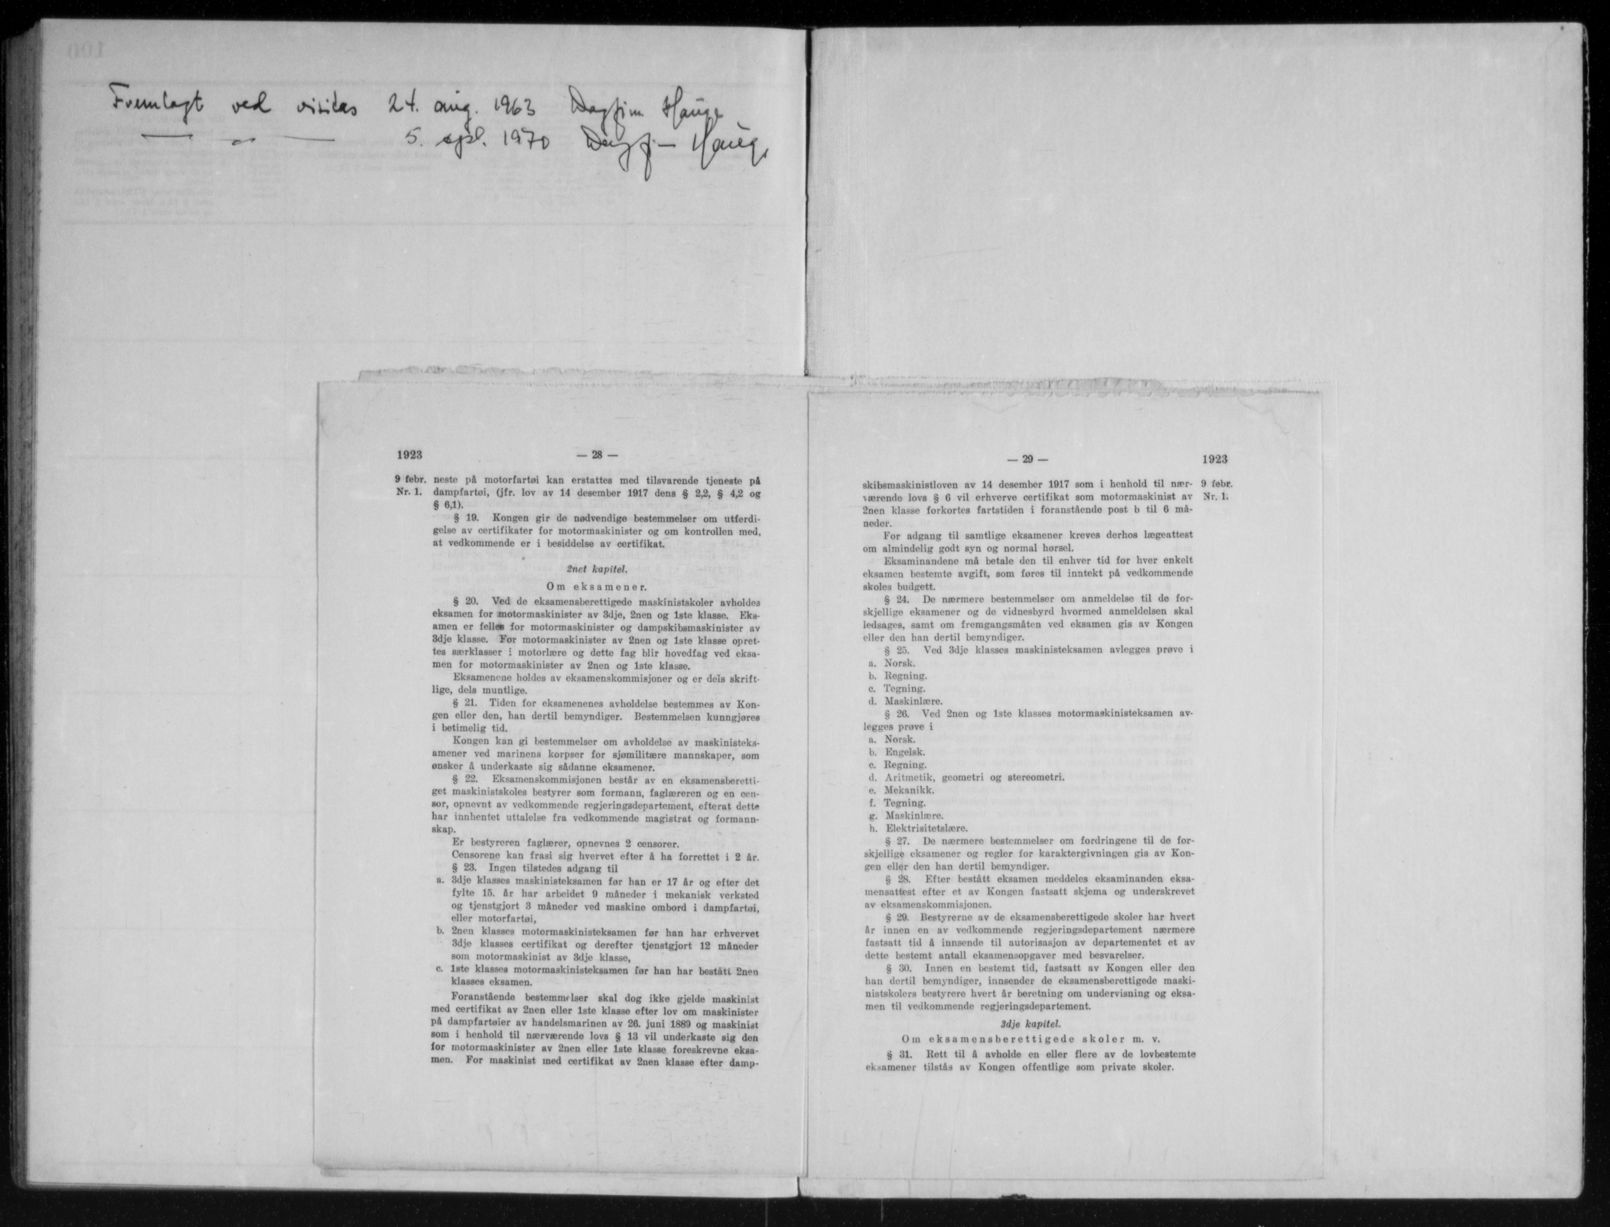 Fremlagt ved visitas 24. aug. 1963 Dagfinn Hauge
— „ — 5. sept. 1970 Dagfinn Hauge
1923 — 28 —
9 febr. neste på motorfartøi kan erstattes med tilsvarende tjeneste på
Nr. 1. dampfartøi, (jfr. lov av 14 desember 1917 dens § 2,2, § 4,2 og
§ 6,1).
§ 19. Kongen gir de nødvendige bestemmelser om utferdi-
gelse av certifikater for motormaskinister og om kontrollen med,
at vedkommende er i besiddelse av certifikat.
2net kapitel.
Om eksamener.
§ 20. Ved de eksamensberettigede maskinistskoler avholdes
eksamen for motormaskinister av 3dje, 2nen og 1ste klasse. Eks-
amen er felles for motormaskinister og dampskibsmaskinister av
3dje klasse. For motormaskinister av 2nen og 1ste klasse opret-
tes særklasser i motorlære og dette fag blir hovedfag ved eksa-
men for motormaskinister av 2nen og 1ste klasse.
Eksamenene holdes av eksamenskommisjoner og er dels skrift-
lige, dels muntlige.
§ 21. Tiden for eksamenenes avholdelse bestemmes av Kon-
gen eller den, han dertil bemyndiger. Bestemmelsen kunngjøres
i betimelig tid.
Kongen kan gi bestemmelser om avholdelse av maskinisteks-
amener ved marinens korpser for sjømilitære mannskaper, som
ønsker å underkaste sig sådanne eksamener.
§ 22. Eksamenskommisjonen består av en eksamensberetti-
get maskinistskoles bestyrer som formann, faglæreren og en cen-
sor, opnevnt av vedkommende regjeringsdepartement, efterat dette
har innhentet uttalelse fra vedkommende magistrat og formann-
skap.
Er bestyreren faglærer, opnevnes 2 censorer.
Censorene kan frasi sig hvervet efter å ha forrettet i 2 år.
§ 23. Ingen tilstedes adgang til
a. 3dje klasses maskinisteksamen før han er 17 år og efter det
fylte 15. år har arbeidet 9 måneder i mekanisk verksted
og tjenstgjort 3 måneder ved maskine ombord i dampfartøi,
eller motorfartøi,
b. 2nen klasses motormaskinisteksamen før han har erhvervet
3dje klasses certifikat og derefter tjenstgjort 12 måneder
som motormaskinist av 3dje klasse,
c. 1ste klasses motormaskinisteksamen før han har bestått 2nen
klasses eksamen.
Foranstående bestemmelser skal dog ikke gjelde maskinist
med certifikat av 2nen eller 1ste klasse efter lov om maskinister
på dampfartøier av handelsmarinen av 26. juni 1889 og maskinist
som i henhold til nærværende lovs § 13 vil underkaste sig den
for motormaskinister av 2nen eller 1ste klasse foreskrevne eksa-
men. For maskinist med certifikat av 2nen klasse efter damp-
— 29 — 1923
skibsmaskinistloven av 14 desember 1917 som i henhold til nær- 9 febr.
værende lovs § 6 vil erhverve certifikat som motormaskinist av Nr. 1.
2nen klasse forkortes fartstiden i foranstående post b til 6 må-
neder.
For adgang til samtlige eksamener kreves derhos lægeattest
om almindelig godt syn og normal hørsel.
Eksaminandene må betale den til enhver tid for hver enkelt
eksamen bestemte avgift, som føres til inntekt på vedkommende
skoles budgett.
§ 24. De nærmere bestemmelser om anmeldelse til de for-
skjellige eksamener og de vidnesbyrd hvormed anmeldelsen skal
ledsages, samt om fremgangsmåten ved eksamen gis av Kongen
eller den han dertil bemyndiger.
§ 25. Ved 3dje klasses maskinisteksamen avlegges prøve i
a. Norsk.
b. Regning.
c. Tegning.
d. Maskinlære.
§ 26. Ved 2nen og 1ste klasses motormaskinisteksamen av-
legges prøve i
a. Norsk.
b. Engelsk.
c. Regning.
d. Aritmetik, geometri og stereometri.
e. Mekanikk.
f. Tegning.
g. Maskinlære.
h. Elektrisitetslære.
§ 27. De nærmere bestemmelser om fordringene til de for-
skjellige eksamener og regler for karaktergivningen gis av Kon-
gen eller den han dertil bemyndiger.
§ 28. Efter bestått eksamen meddeles eksaminanden eksa-
mensattest efter et av Kongen fastsatt skjema og underskrevet
av eksamenskommisjonen.
§ 29. Bestyrerne av de eksamensberettigede skoler har hvert
år innen en av vedkommende regjeringsdepartement nærmere
fastsatt tid å innsende til autorisasjon av departementet et av
dette bestemt antall eksamensopgaver med besvarelser.
§ 30. Innen en bestemt tid, fastsatt av Kongen eller den
han dertil bemyndiger, innsender de eksamensberettigede maski-
nistskolers bestyrere hvert år beretning om undervisning og eksa-
men til vedkommende regjeringsdepartement.
3dje kapitel.
Om eksamensberettigede skoler m. v.
§ 31. Rett til å avholde en eller flere av de lovbestemte
eksamener tilstås av Kongen offentlige som private skoler.